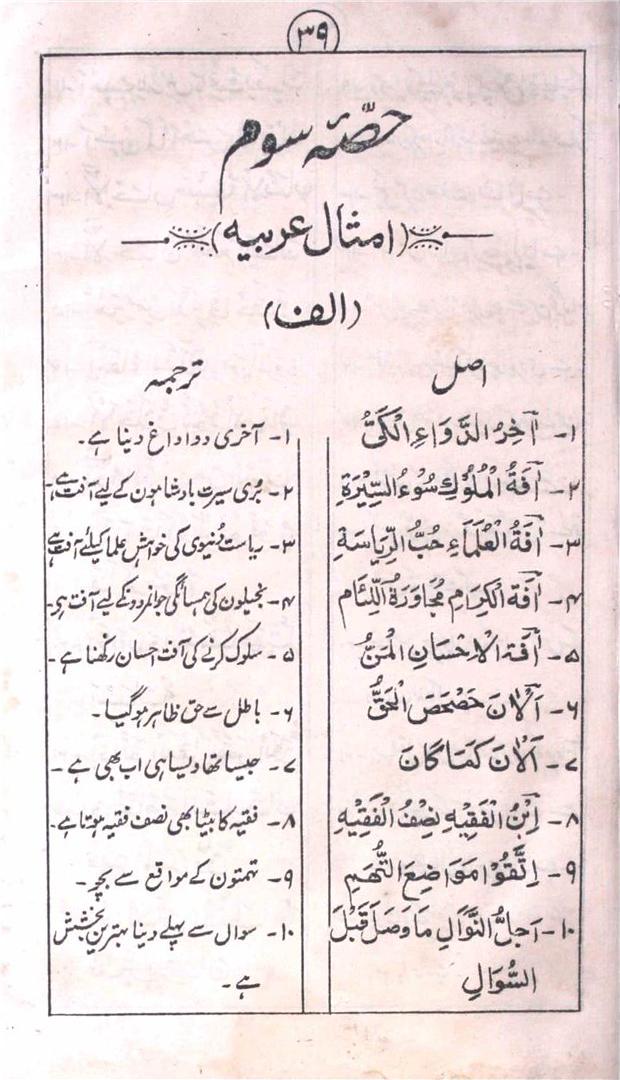 ۳۹
حصّۂ سوم
(امثال عربیہ)
(الف)
اصل
ترجمہ
۱- اٰخِرُ الدَّوَاءِ الْکَیُّ
۱- آخری دوا داغ دینا ہے۔
۲- اٰفَةُ الْمُلُوْكِ سُوْءُ السِّیْرَةِ
۲- بُری سیرت بادشاہون کے لیے آفت ہے۔
۳- اٰفَةُ الْعُلَمَاءِ حُبُّ الرِّیَاسَةِ
۳- ریاست دُنیوی کی خواہش علما کیلئے آفت ہے
۴- اٰفَة الْکِرَامِ مُجَاوَرَةُ اللِّئَام
۴- بخیلون کی ہمسائگی جوانمردونکے لیے آفت ہی۔
۵- اٰفَة الْاِحْسَانِ الْمَنُّ
۵- سلوک کرنے کی آفت احسان رکھنا ہے۔
۶- اَلْاٰنَ حَصْحَصَ الْحَقُّ
۶- باطل سے حق ظاہر ہو گیا۔
۷- اَلْاٰنَ کَمَا کَانَ
۷- جیسا تھا ویسا ہی اب بھی ہے۔
۸- اِبْنُ الْفَقِیْهِ نِصْفُ الْفَقِیْهِ
۸- فقیہ کا بیٹا بھی نصف فقیہ ہوتا ہے۔
۹- اِتَّقُوْا مَوَاضِعَ التُّهَمِ
۹- تہمتون کے مواقع سے بچو۔
۱۰- اَجَلُّ النَّوَالِ مَا وَصَلَ قَبْلَ
السُّوَالِ
۱۰- سوال سے پہلے دینا بہترین بخشش
ہے۔